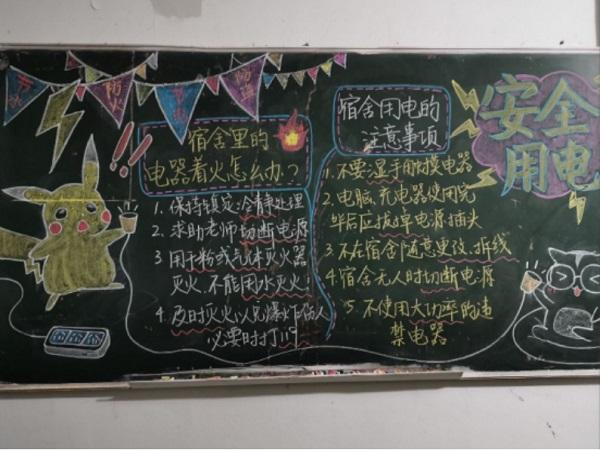 防火
防盗
安全
用电
宿舍里的
电器着火怎么办?
1. 保持镇定冷静处理
2. 求助老师切断电源
3 用干粉或气体灭火器
灭火,不能用水灭火!
4. 及时灭火以免爆炸伤人
必要时打119
宿舍用电的
注意事项
1. 不要湿手触摸电器
2. 电脑,充电器使用完
毕后应拔掉电源插头
3. 不在宿舍随意更改,拆线
4 宿舍无人时切断电源
5. 不使用大功率的违
禁电器